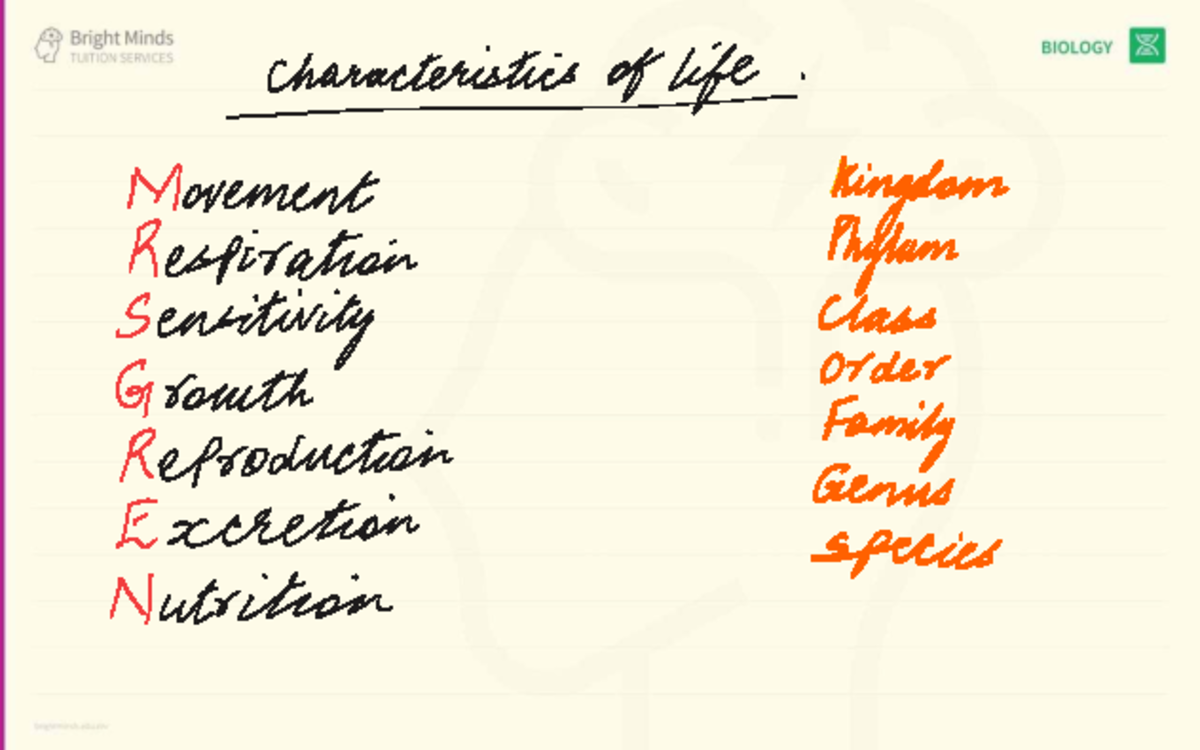 Bright Minds
TUITION SERVICES
BIOLOGY
Characteristics of life.
Movement
Respiration
Sensitivity
Growth
Reproduction
Excretion
Nutrition
Kingdom
Phylum
Class
Order
Family
Genus
Species